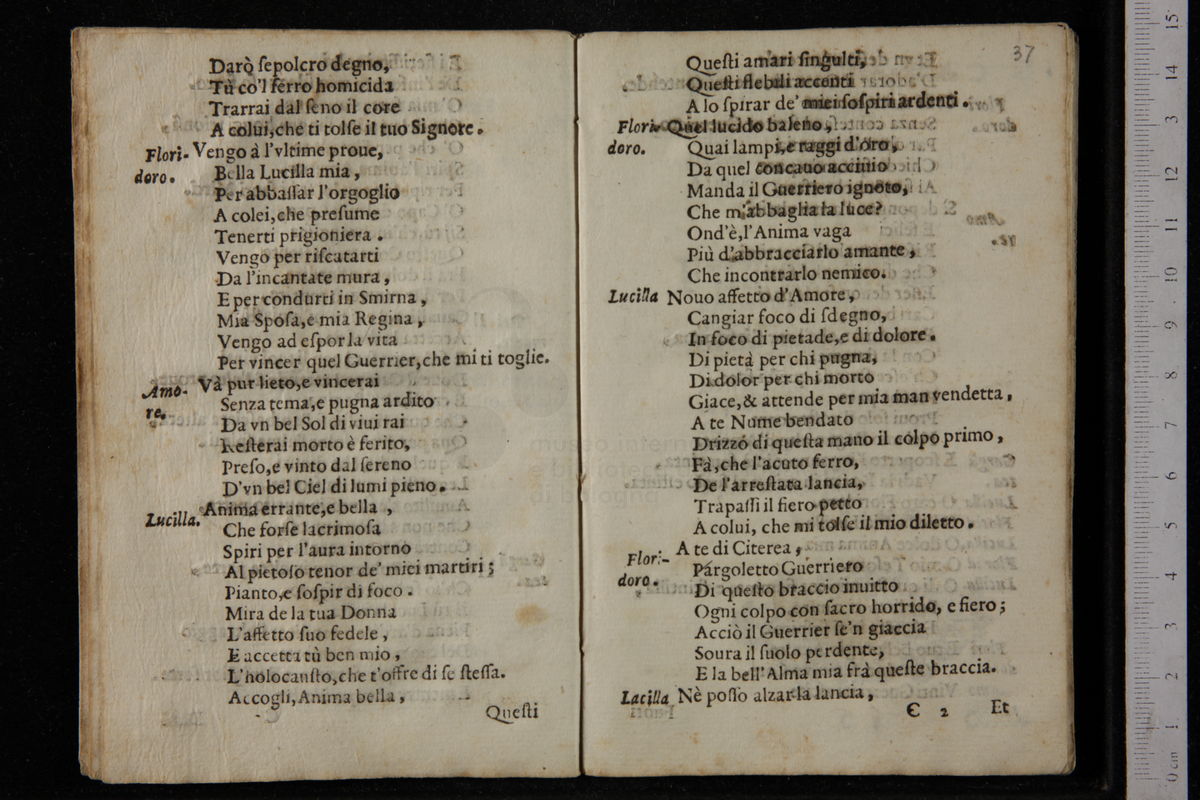 Darò ſepolcro degno,
Tù co'l ferro homicida
Trarrai dal ſeno il core
A colui,che ti tolſe il tuo Signore.
Flori- Vengo à l'vltime proue,
doro. Bella Lucilla mia,
Per abbaſſar l'orgoglio
A colei,che preſume
Tenerti prigioniera.
Vengo per riſcatarti
Da l'incantate mura,
E per condurti in Smirna,
Mia Spoſa,e mia Regina,
Vengo ad eſpor la vita
Per vincer quel Guerrier,che mi ti toglie.
Amo- Và pur lieto,e vincerai
re. Senza tema,e pugna ardito
Da vn bel Sol di viui rai
Reſterai morto è ferito,
Preſo,e vinto dal ſereno
D'vn bel Ciel di lumi pieno.
Lucilla. Anima errante,e bella,
Che forſe lacrimoſa
Spiri per l'aura intorno
Al pietoſo tenor de' miei martiri;
Pianto,e ſoſpir di foco.
Mira de la tua Donna
L'affetto ſuo fedele,
E accetta tù ben mio,
L'holocauſto,che t'offre di ſe ſteſſa.
Accogli,Anima bella,
Queſti
37
Queſti amari ſingulti,
Queſti flebili accenti
A lo ſpirar de' miei ſoſpiri ardenti.
Flori- Quel lucido baleno,
doro. Quai lampi,e raggi d'oro,
Da quel concauo acciaio
Manda il Guerriero ignoto,
Che m'abbaglia la luce?
Ond'è,l'Anima vaga
Più d'abbracciarlo amante,
Che incontrarlo nemico.
Lucilla Nouo affetto d'Amore,
Cangiar foco di ſdegno,
In foco di pietade,e di dolore.
Di pietà per chi pugna,
Di dolor per chi morto
Giace,& attende per mia man vendetta,
A te Nume bendato
Drizzò di queſta mano il colpo primo,
Fà,che l'acuto ferro,
De l'arreſtata lancia,
Trapaſſi il fiero petto
A colui, che mi tolſe il mio diletto.
Flori- A te di Citerea,
doro. Pargoletto Guerriero
Di queſto braccio inuitto
Ogni colpo con ſacro horrido, e fiero;
Acciò il Guerrier ſe'n giaccia
Soura il ſuolo perdente,
E la bell'Alma mia frà queſte braccia.
Lacilla Nè poſſo alzar la lancia,
C 2 Et
museo intern
e bibliotec
di bologna
0 cm 1 2 3 4 5 6 7 8 9 10 11 12 13 14 15